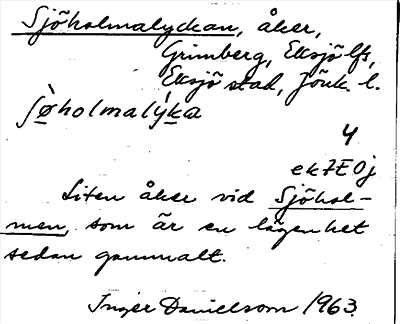 Sjöholmalyckan, åker,
Grimberg, Eksjö lfs,
Eksjö stad, Jönk. l.
ʃø̀holmalýka
4
ek7E0j
Liten åker vid Sjöhol-
men, som är en lägenhet
sedan gammalt.
Inger Danielsson 1963.